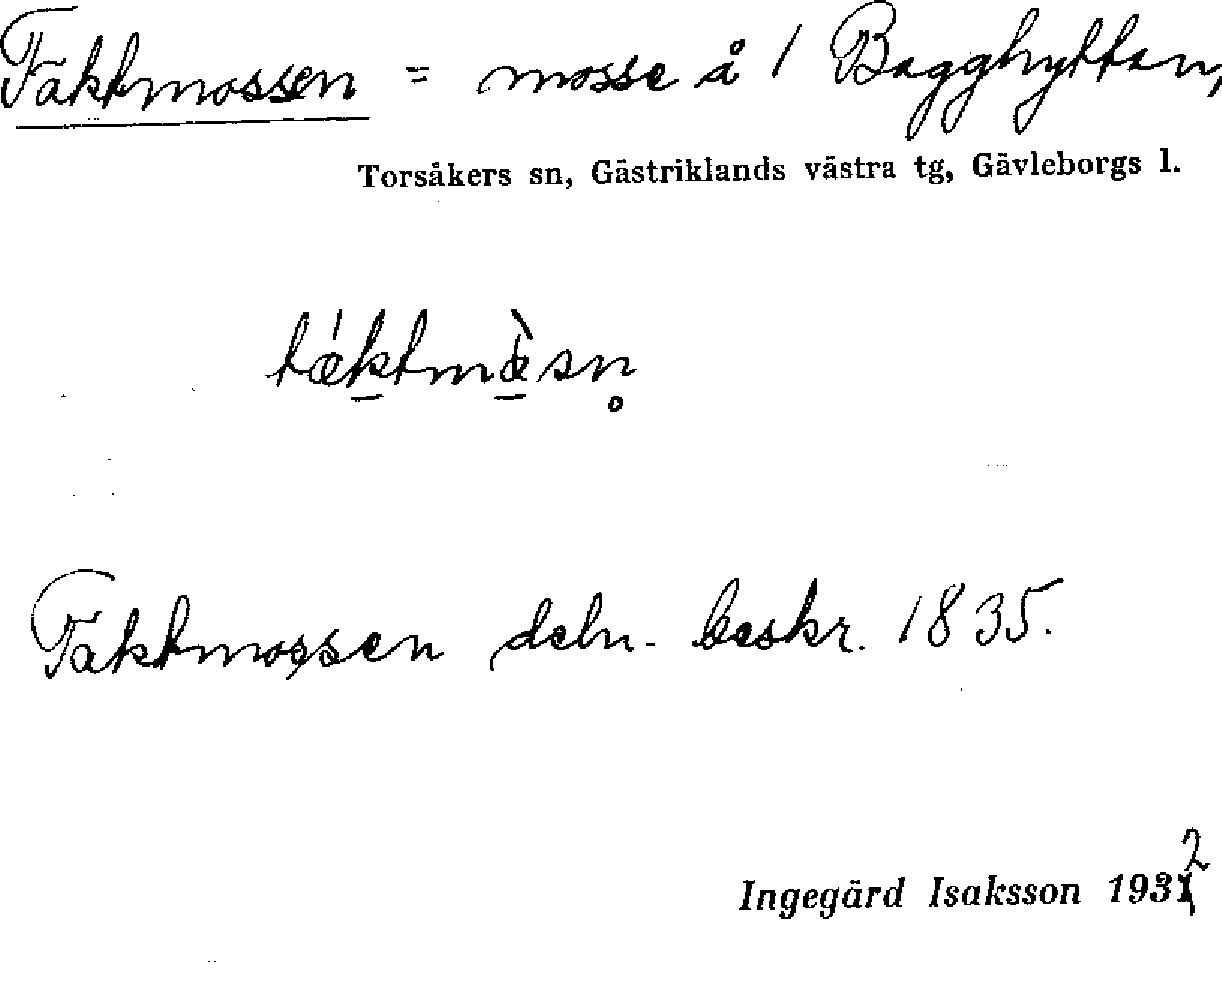 Täktmossen = mosse å / Bagghyttan,
Torsåkers sn, Gästriklands västra tg, Gävleborgs l.
Täktmossen deln. beskr. 1835.
Ingegärd Isaksson 1932